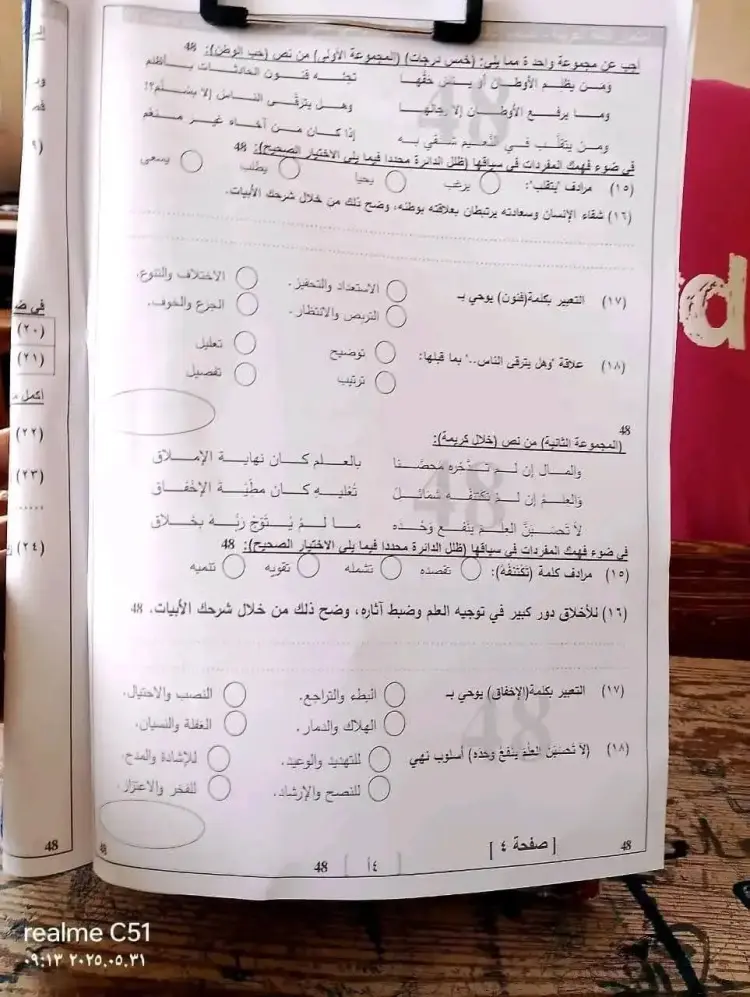 أجب عن مجموعة واحدة مما يلي: (خمس درجات) (المجموعة الأولى) من نص (حب الوطن): 48
ومن يظلم الأوطان أو ينس حقها تجئه فنون الحادثات بأظلم
وما يرفع الأوطان إلا رجالها وهل يترقى الناس إلا بسلم؟!
ومن يتقلب في النعيم شقي به إذا كان من آخاه غير منعم
في ضوء فهمك المفردات في سياقها (ظلل الدائرة محددا فيما يلي الاختيار الصحيح): 48
(١٥) مرادف "يتقلب": يرغب يحيا يطلب يسعى
(١٦) شقاء الإنسان وسعادته يرتبطان بعلاقته بوطنه، وضح ذلك من خلال شرحك الأبيات.
(١٧) التعبير بكلمة (فنون) يوحي بـ الاستعداد والتحفيز. الاختلاف والتنوع.
التربص والانتظار. الجزع والخوف.
(١٨) علاقة "وهل يترقى الناس.." بما قبلها: توضيح تعليل
ترتيب تفصيل
48
(المجموعة الثانية) من نص (خلال كريمة):
والمال إن لم تدخره محصنا بالعلم كان نهاية الإملاق
والعلم إن لم تكتنفه شمائل تعليه كان مطية الإخفاق
لا تحسبن العلم ينفع وحده ما لم يتوج ربه بخلاق
في ضوء فهمك المفردات في سياقها (ظلل الدائرة محددا فيما يلي الاختيار الصحيح): 48
(١٥) مرادف كلمة (تكتنفه): تقصده تشمله تقويه تلميه
(١٦) للأخلاق دور كبير في توجيه العلم وضبط آثاره، وضح ذلك من خلال شرحك الأبيات. 48
(١٧) التعبير بكلمة (الإخفاق) يوحي بـ البطء والتراجع. النصب والاحتيال.
الهلاك والدمار. الغفلة والنسيان.
(١٨) (لا تحسبن العلم ينفع وحده) أسلوب نهي للتهديد والوعيد. للإشادة والمدح.
للنصح والإرشاد. للفخر والاعتزاز.
48 [ صفحة ٤ ] 48
٤أ 48
في ض
(٢٠)
(٢١)
أكمل
(٢٢)
(٢٣)
(٢٤)
48
realme C51
٠٩:١٣ ٢٠٢٥.٠٥.٣١